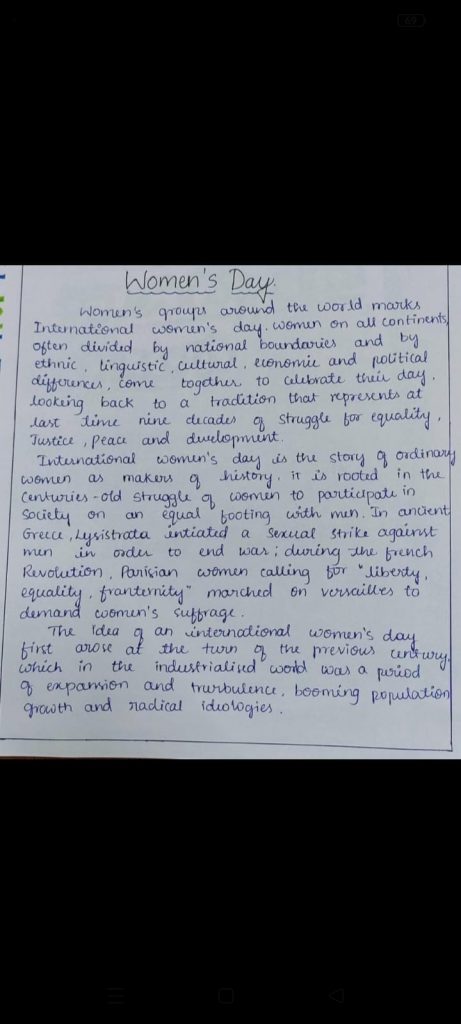 69
Women's Day.
Women's groups around the world marks
International women's day. women on all continents,
often divided by national boundaries and by
ethnic, linguistic, cultural, economic and political
differences, come together to celebrate their day,
looking back to a tradition that represents at
last time nine decades of struggle for equality,
Justice, peace and development.
International women's day is the story of ordinary
women as makers of history. it is rooted in the
Centuries-old struggle of women to participate in
Society on an equal footing with men. In ancient
Greece, Lysistrata intiated a Sexual Strike against
men in order to end war; during the french
Revolution, Parisian women calling for "liberty,
equality, franternity" marched on versailles to
demand women's suffrage.
The Idea of an international women's day
first arose at the turn of the previous century,
which in the industrialised world was a period
of expansion and trurbulence, booming population
growth and radical ideologies.